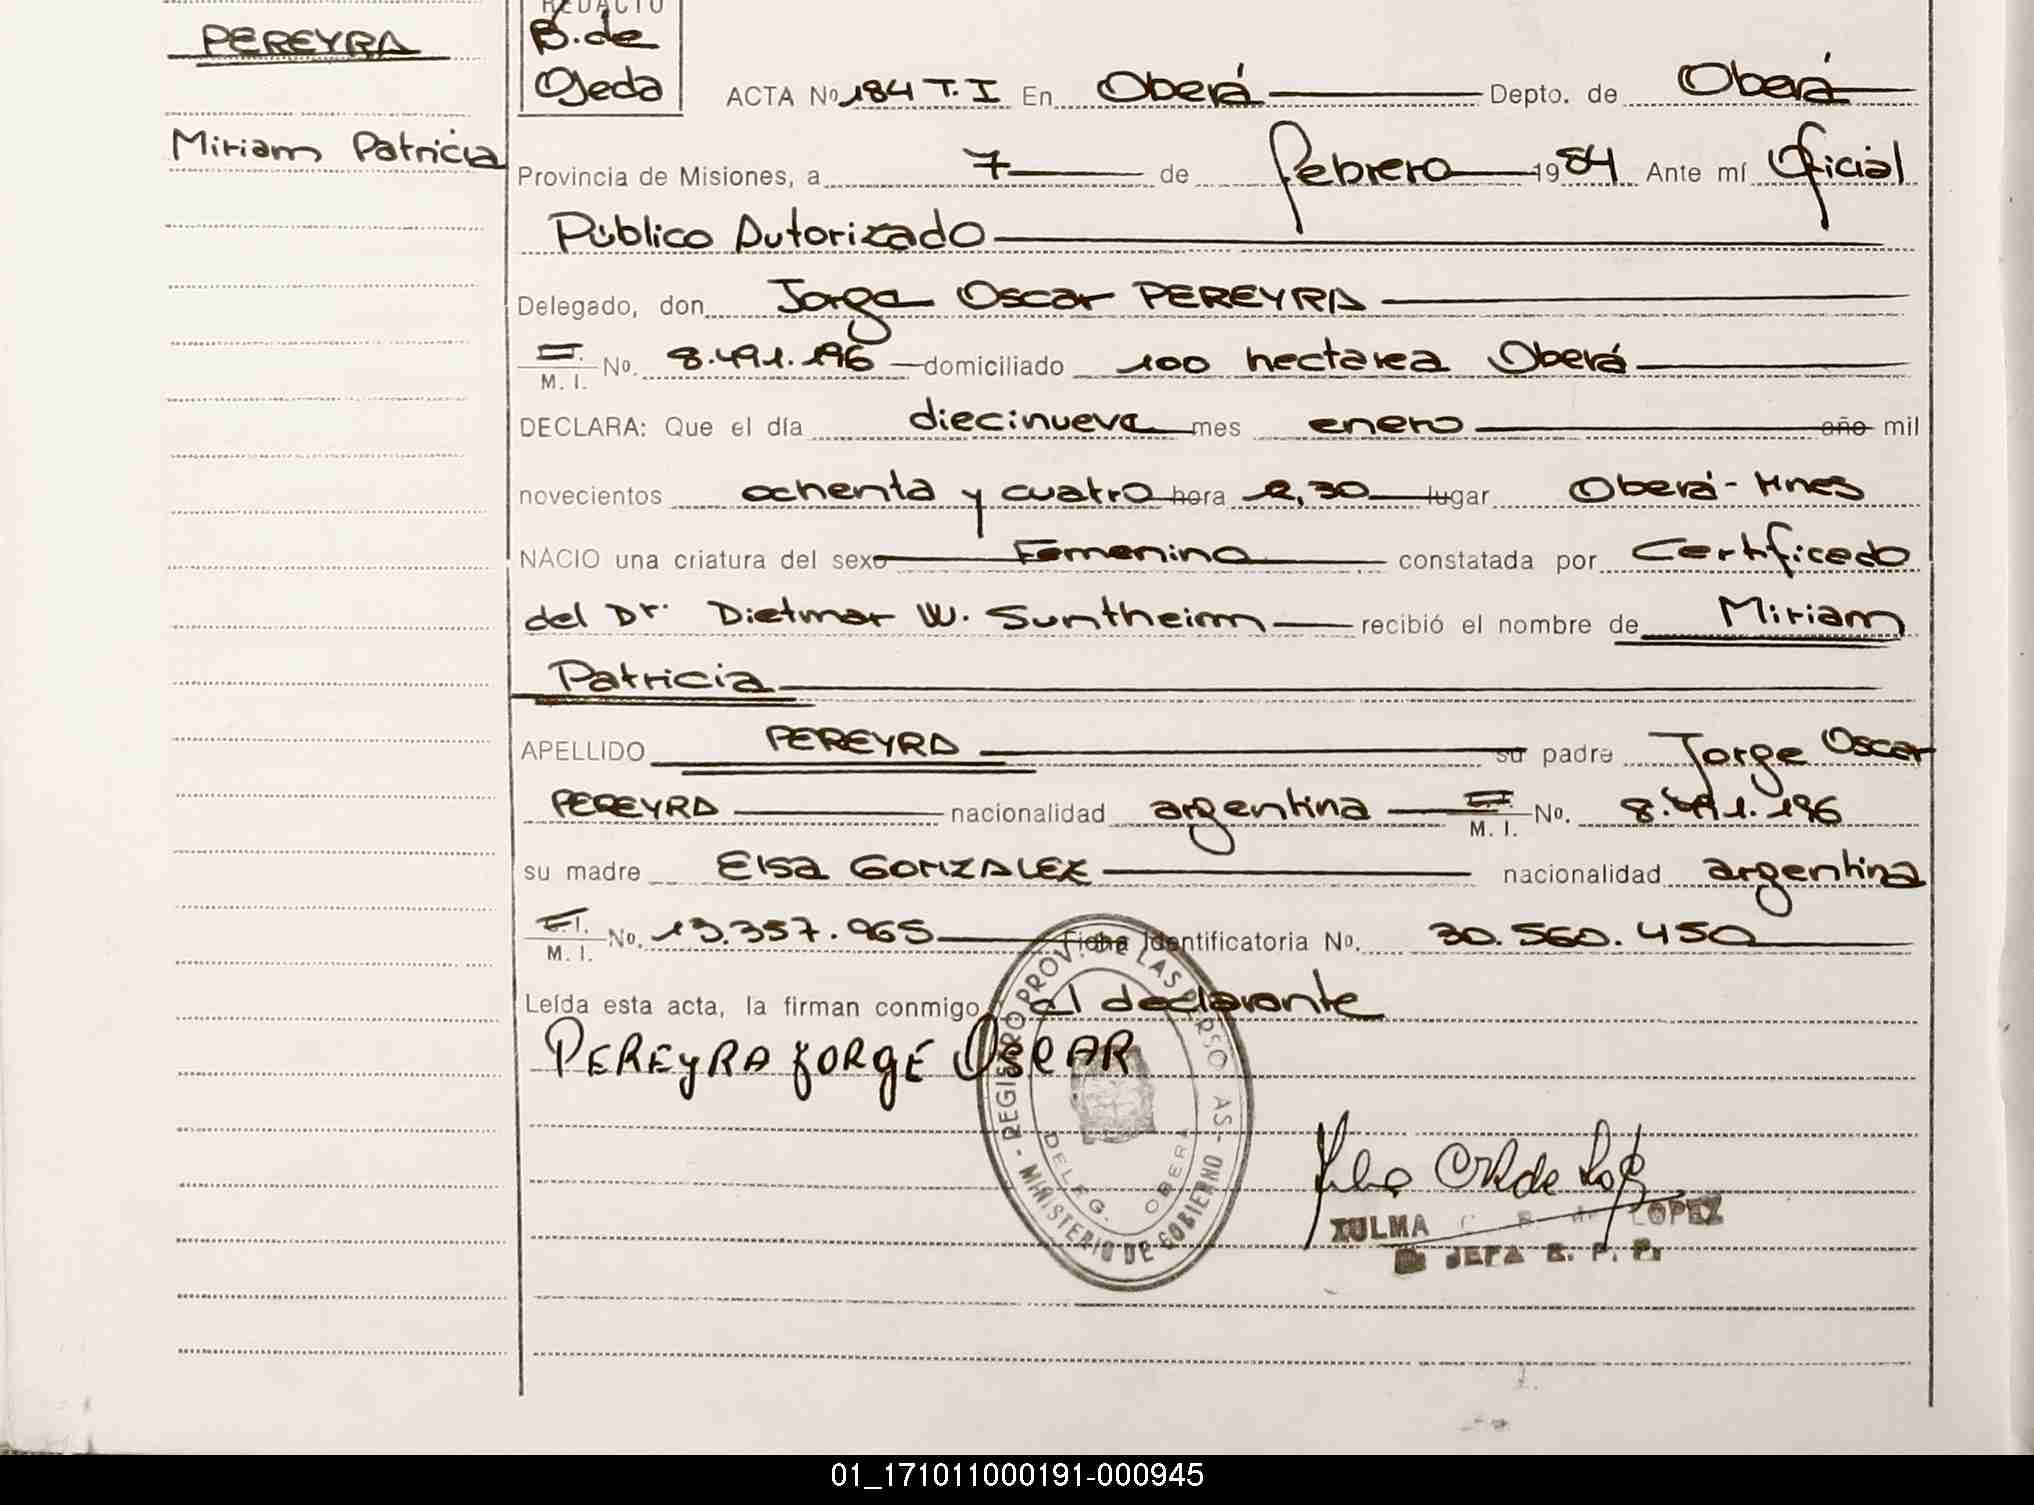 PEREYRA
Miriam Patricia
REDACTO
B. de
Ojeda
ACTA No 184 T. I En Oberá Depto. de Oberá
Provincia de Misiones, a 7 de febrero 1984 Ante mí Oficial
Público Autorizado
Delegado, don Jorge Oscar PEREYRA
M. I. No. 8.491.196 domiciliado 100 hectarea Oberá
DECLARA: Que el día diecinueve mes enero año mil
novecientos ochenta y cuatro hora 2,30 lugar Oberá - Mnes
NACIO una criatura del sexo Femenino constatada por Certificado
del Dr. Dietmar W. Suntheim recibió el nombre de Miriam
Patricia
APELLIDO PEREYRA su padre Jorge Oscar
PEREYRA nacionalidad argentina M. I. No. 8.491.196
su madre Elsa GONZALEZ nacionalidad argentina
E.I. M. I. No. 13.357.965 Ficha Identificatoria No. 30.560.450
Leída esta acta, la firman conmigo el declarante
PEREYRA JORGE OSCAR
- REGISTRO PROV. DE LAS PERSONAS - MINISTERIO DE GOBIERNO
DELEG. OBERA
ZULMA C. B. de LOPEZ
JEFA R. P. P.
01_171011000191-000945